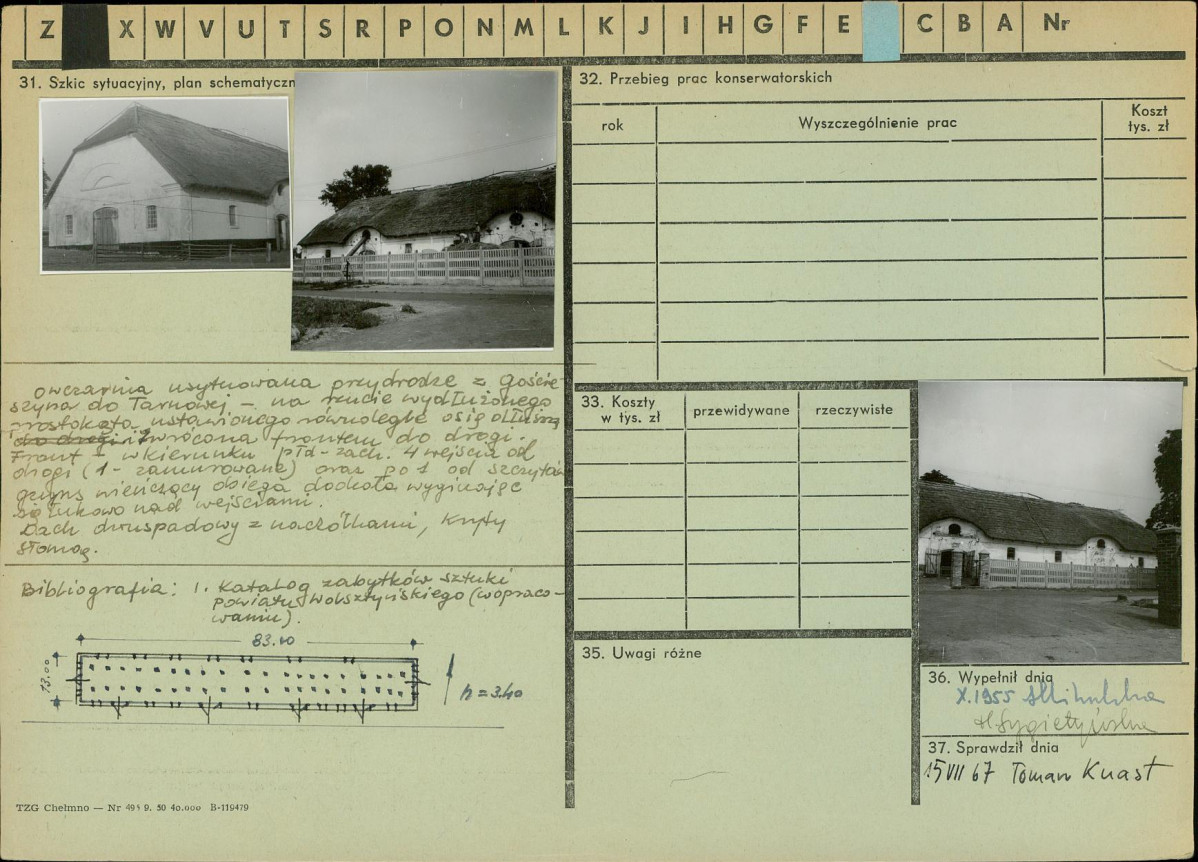 Z X W V U T S R P O N M L K J I H G F E C B A Nr
31. Szkic sytuacyjny, plan schematyczn
owczarnia usytuowana przy drodze z Goście-
szyna do Tarnowej – na rzucie wydłużonego
prostokąta ustawionego równolegle osią dłuższą
do drogi i zwrócona frontem do drogi.
Front – w kierunku płd-zach. 4 wejścia od
drogi (1 - zamurowane) oraz po 1 od szczytów
gzyms wieńczący obiega dookoła wyginając
się łukowo nad wejściami.
Dach dwuspadowy z naczółkami, kryty
słomą.
Bibliografia: 1. Katalog zabytków sztuki
powiatu Wolsztyńskiego (w opraco-
waniu).
83.00
13.00
h = 3.40
TZG Chełmno — Nr 495 9. 50 40.000 B-119479
32. Przebieg prac konserwatorskich
rok Wyszczególnienie prac Koszt
tys. zł
33. Koszty
w tys. zł przewidywane rzeczywiste
35. Uwagi różne
36. Wypełnił dnia
X.1955
37. Sprawdził dnia
15 VII 67 Toman Knast